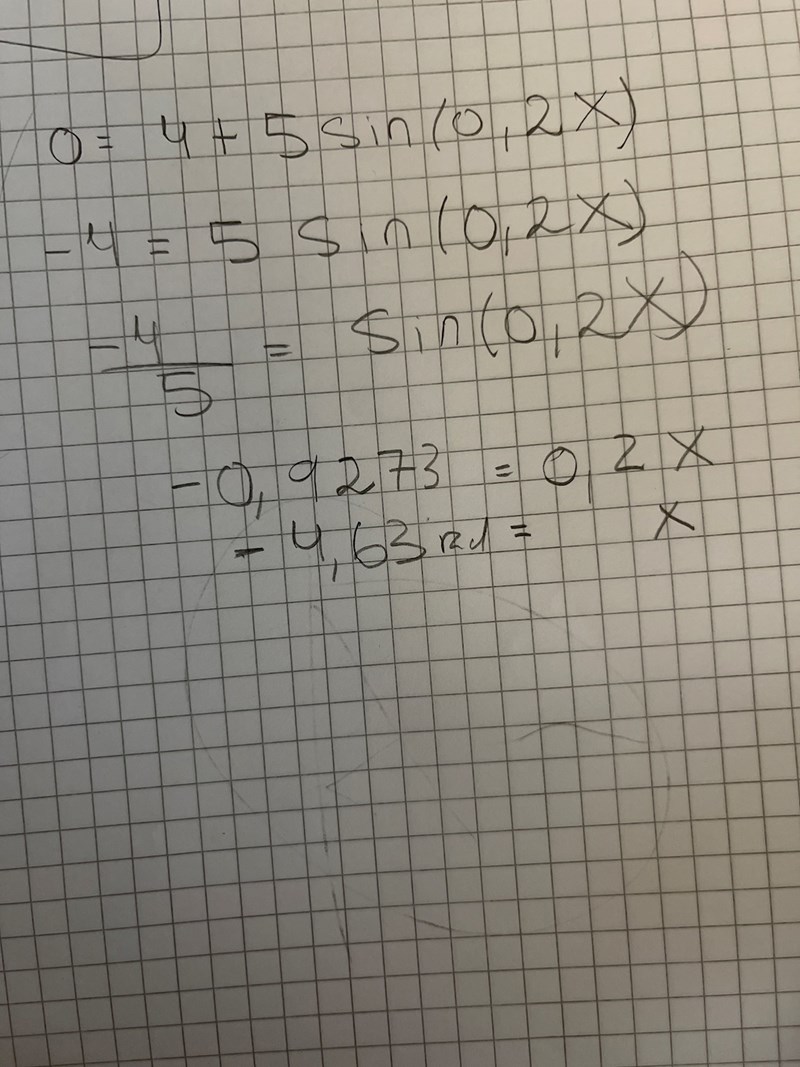 0 = 4 + 5 sin(0,2X)
-4 = 5 sin(0,2X)
-4/5 = sin(0,2X)
-0,9273 = 0,2 X
-4,63 rad = X